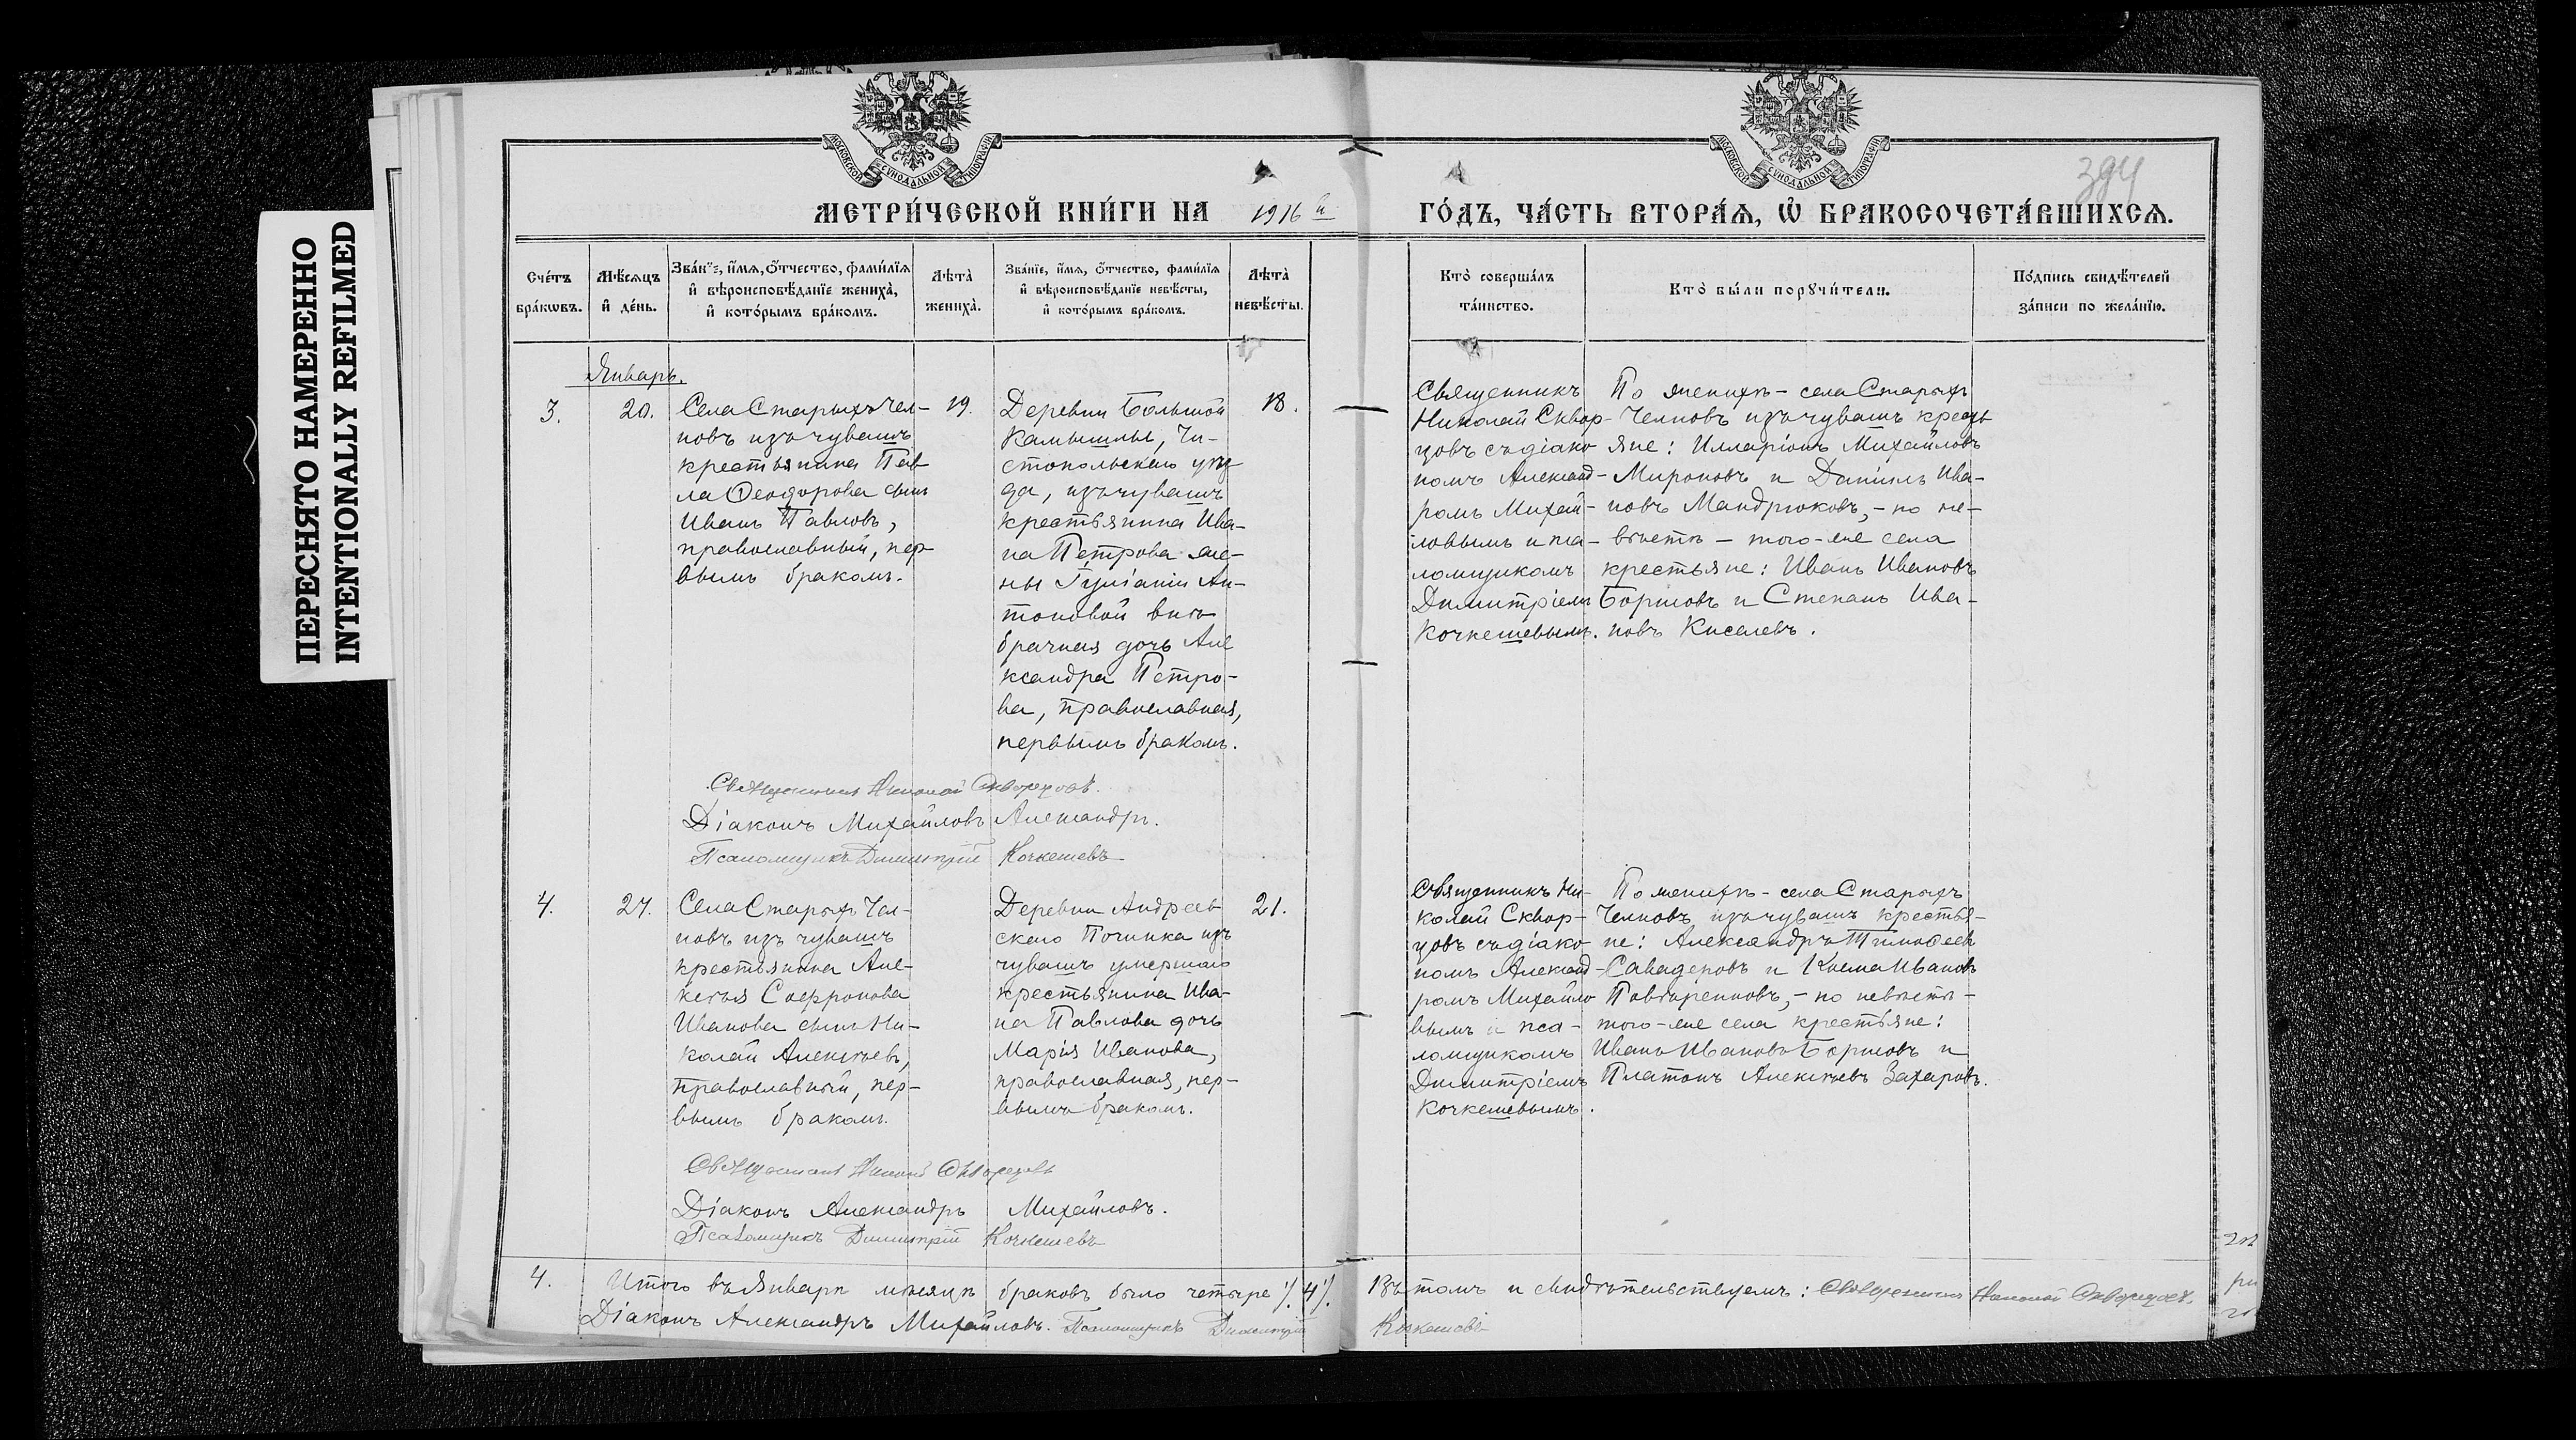 ПЕРЕСНЯТО НАМЕРЕННО
INTENTIONALLY REFILMED
МОСКОВСКОЙ СѴНОДАЛЬНОЙ ТИПОГРАФІИ
МОСКОВСКОЙ СѴНОДАЛЬНОЙ ТИПОГРАФІИ
394
МЕТРИ́ЧЕСКОЙ КНИ́ГИ НА 1916 й ГО́ДЪ, ЧА́СТЬ ВТОРА́Я, Ѽ БРАКОСОЧЕТА́ВШИХСѦ.
Сче́тъ
бра́кѡвъ.
Мѣ́сѧцъ
и҆ де́нь.
Зва́нїе, и҆́мѧ, ѻ҆́тчество, фами́лїѧ
и҆ вѣроисповѣ́данїе жениха̀,
и҆ кото́рымъ бра́комъ.
Лѣта̀
жениха̀.
Зва́нїе, и҆́мѧ, ѻ҆́тчество, фами́лїѧ
и҆ вѣроисповѣ́данїе невѣ́сты,
и҆ кото́рымъ бра́комъ.
Лѣта̀
невѣ́сты.
Кто̀ соверша́лъ
та́инство.
Кто̀ бы́ли порꙋчи́тели.
По́дпись свидѣ́телей
за́писи по жела́нїю.
Январь.
3.
20.
Села Старыхъ Чел-
новъ изъ чувашъ
крестьянина Пав
ла Ѳеодорова сынъ
Иванъ Павловъ,
православный, пер-
вымъ бракомъ.
19.
Деревни Большой
Камышлы, Чи-
стопольскаго уѣз-
да, изъ чувашъ
крестьянина Ива-
на Петрова же-
ны Іуліаніи Ан-
тоновой внѣ
брачная дочь Але
ксандра Петро-
ва, православная,
первымъ бракомъ.
18.
Священникъ
Николай Сквор-
цовъ съ діако
номъ Александ-
ромъ Михай-
ловымъ и пса-
ломщикомъ
Димитріемъ
Кочкешевымъ.
По женихѣ - села Старыхъ
Челновъ изъ чувашъ кресть
яне: Илларіонъ Михайловъ
Мироновъ и Даніилъ Ива-
новъ Мандрюковъ, - по не-
вѣстѣ - того-же села
крестьяне: Иванъ Ивановъ
Борисовъ и Степанъ Ива-
новъ Киселевъ.
Священникъ Николай Скворцовъ.
Діаконъ Михайловъ Александръ.
Псаломщикъ Димитрій Кочкешевъ
4.
27.
Села Старыхъ Чел-
новъ изъ чувашъ
крестьянина Але-
ксѣя Софронова
Иванова сынъ Ни-
колай Алексѣевъ,
православный, пер-
вымъ бракомъ.
Деревни Андреев
скаго Починка изъ
чувашъ умершаго
крестьянина Ива-
на Павлова дочь
Марія Иванова,
православная, пер-
вымъ бракомъ.
21.
Священникъ Ни-
колай Сквор-
цовъ съ діако
номъ Александ-
ромъ Михайло
вымъ и пса-
ломщикомъ
Димитріемъ
Кочкешевымъ.
По женихѣ - села Старыхъ
Челновъ изъ чувашъ крестья-
не: Александръ Тимоѳеевъ
и Косма Ивановъ
- по невѣстѣ -
того-же села крестьяне:
Иванъ Ивановъ Борисовъ и
Платонъ Алексѣевъ Захаровъ.
Священникъ Николай Скворцовъ
Діаконъ Александръ Михайловъ.
Псаломщикъ Димитрій Кочкешевъ
4.
Итого въ Январѣ мѣсяцѣ браковъ было четыре /4/. Въ томъ и свидѣтельствуемъ: Священникъ Николай Скворцовъ.
Діаконъ Александръ Михайловъ. Псаломщикъ Димитрій Кочкешевъ